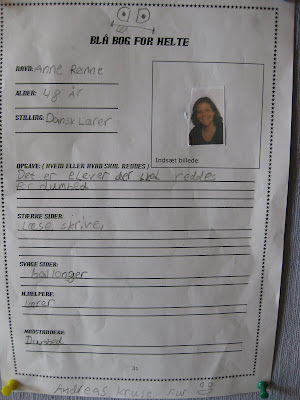 BLÅ BOG FOR HELTE
NAVN: Anne Rønne
ALDER: 48 år
STILLING: Dansk Lærer
Indsæt billede
OPGAVE: (HVEM ELLER HVAD SKAL REDDES)
Det er elever der skal reddes
for dumhed
STÆRKE SIDER:
læse, skrive,
SVAGE SIDER:
ballonger
HJÆLPERE:
lærer
MODSTANDERE:
Dumhed
Andreas Kruse